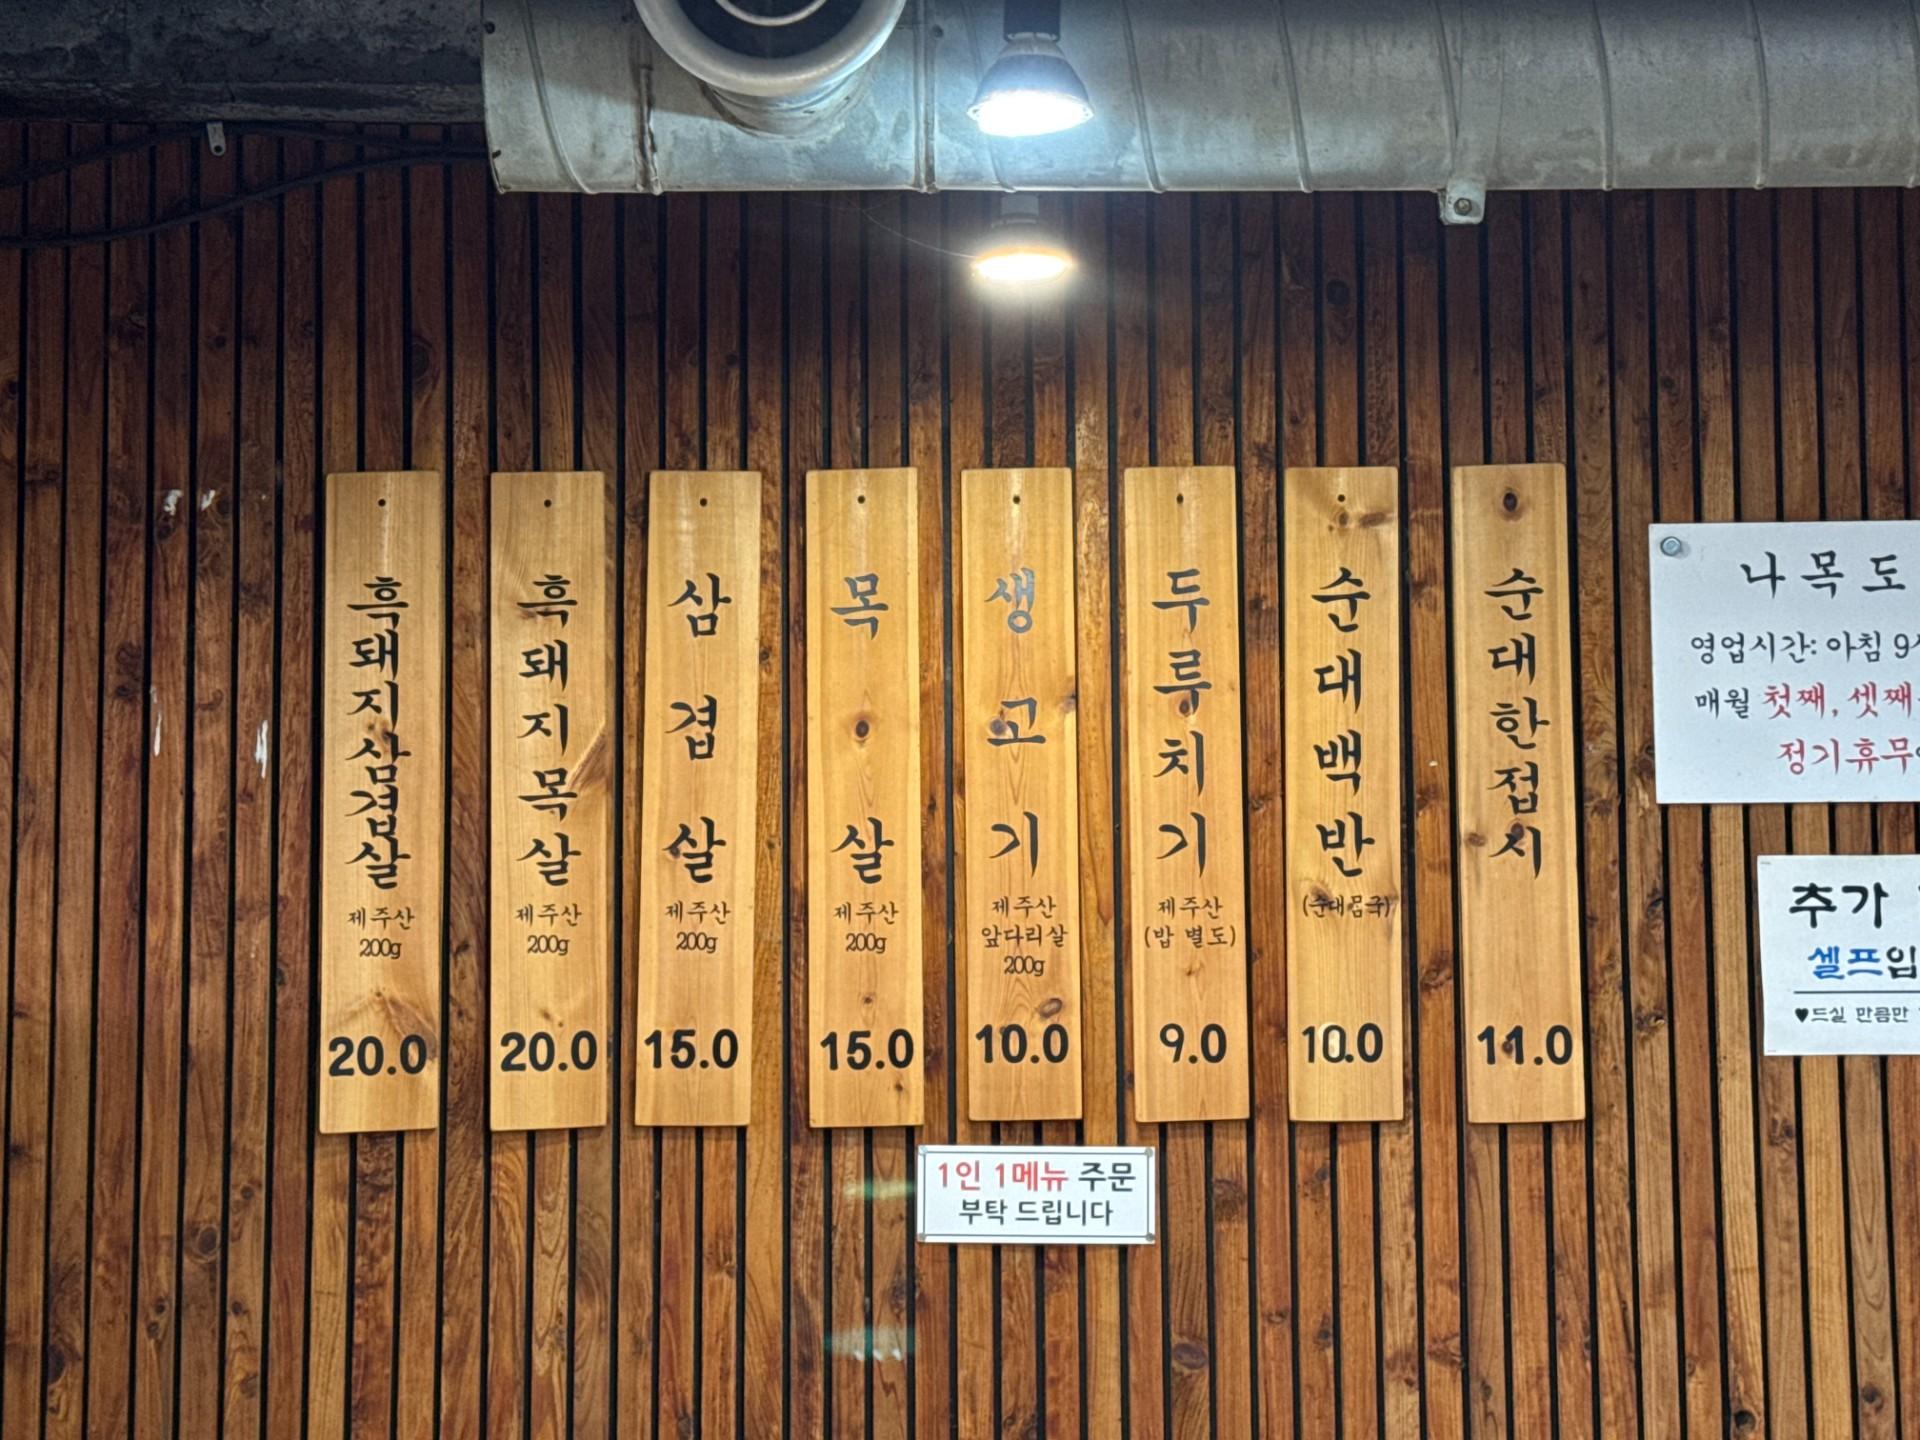 흑돼지삼겹살
제주산
200g
20.0
흑돼지목살
제주산
200g
20.0
삼겹살
제주산
200g
15.0
목살
제주산
200g
15.0
생고기
제주산
앞다리살
200g
10.0
두루치기
제주산
(밥 별도)
9.0
순대백반
(순대몸국)
10.0
순대한접시
11.0
1인 1메뉴 주문
부탁 드립니다
나목도
영업시간: 아침 9시
매월 첫째, 셋째
정기휴무
추가
셀프입
♥드실 만큼만